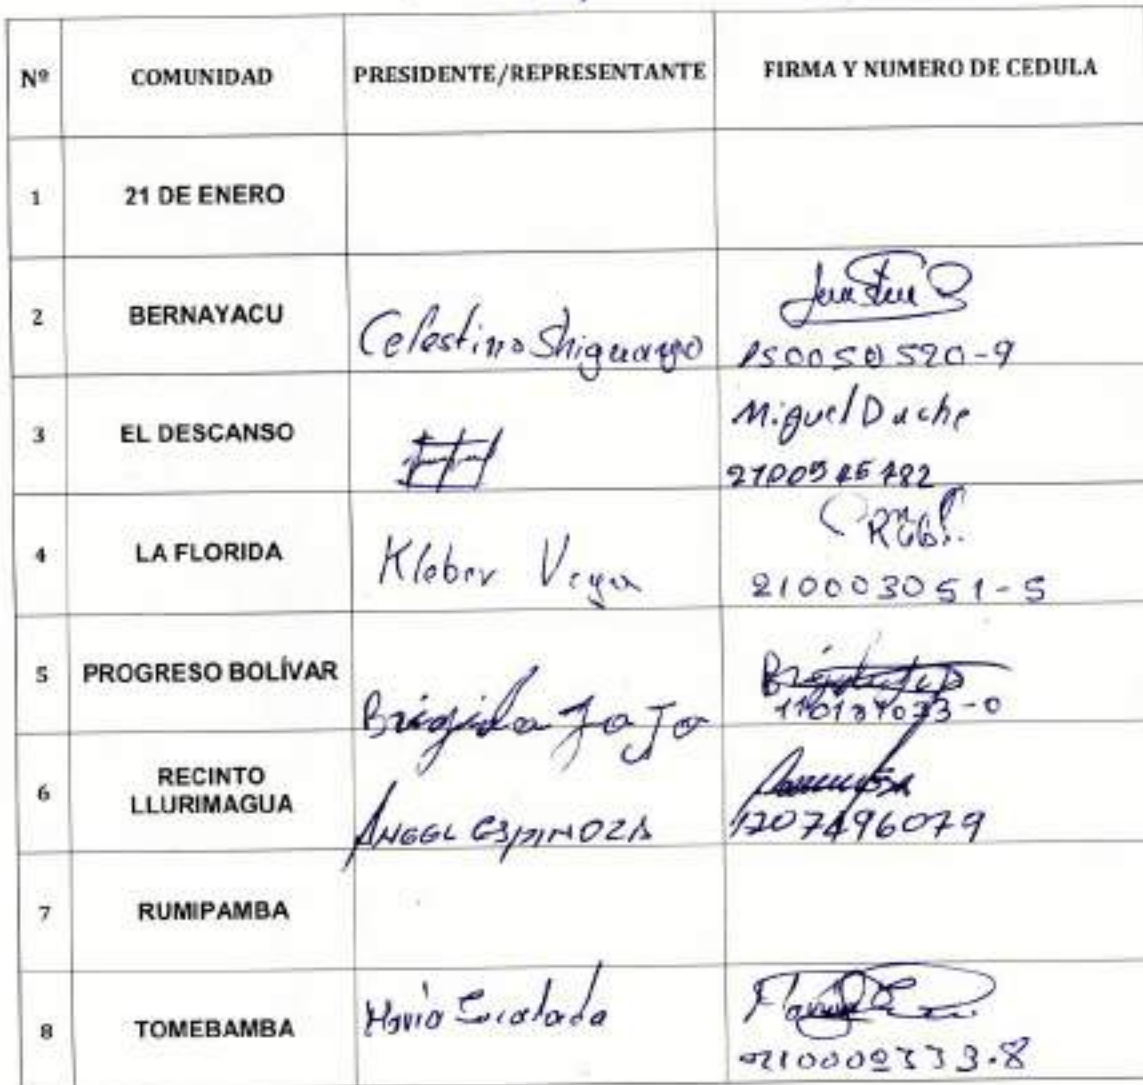 Nº COMUNIDAD PRESIDENTE/REPRESENTANTE FIRMA Y NUMERO DE CEDULA
1 21 DE ENERO
2 BERNAYACU Celestino Shiguango
150050520-9
3 EL DESCANSO Miguel Duche
4 LA FLORIDA Kleber Vega
210003051-5
5 PROGRESO BOLÍVAR Brigida JaJo
6 RECINTO
LLURIMAGUA ANGEL ESPINOZA
1707496079
7 RUMIPAMBA
8 TOMEBAMBA